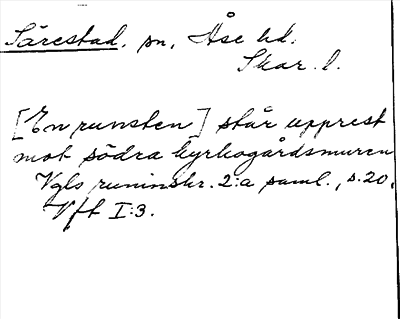 Särestad. sn, Åse hd.
Skar. l.
[En runsten] står upprest
mot södra kyrkogårdsmuren
Vgls runinskr. 2:a saml., s. 20.
Vft I:3.